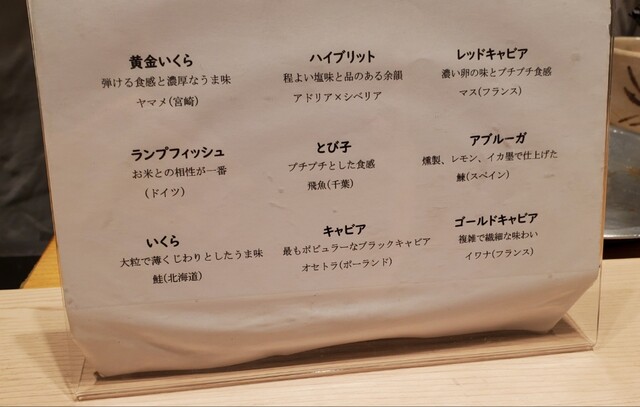 黄金いくら
弾ける食感と濃厚なうま味
ヤマメ(宮崎)
ハイブリット
程よい塩味と品のある余韻
アドリア×シベリア
レッドキャビア
濃い卵の味とプチプチ食感
マス(フランス)
ランプフィッシュ
お米との相性が一番
(ドイツ)
とび子
プチプチとした食感
飛魚(千葉)
アブルーガ
燻製、レモン、イカ墨で仕上げた
鰊(スペイン)
いくら
大粒で薄くじわりとしたうま味
鮭(北海道)
キャビア
最もポピュラーなブラックキャビア
オセトラ(ポーランド)
ゴールドキャビア
複雑で繊細な味わい
イワナ(フランス)